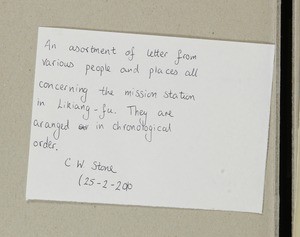 An asortment of letter from
various people and places all
concerning the mission station
in Likiang-fu. They are
aranged in chronological
order.
C W Stone
(25-2-20